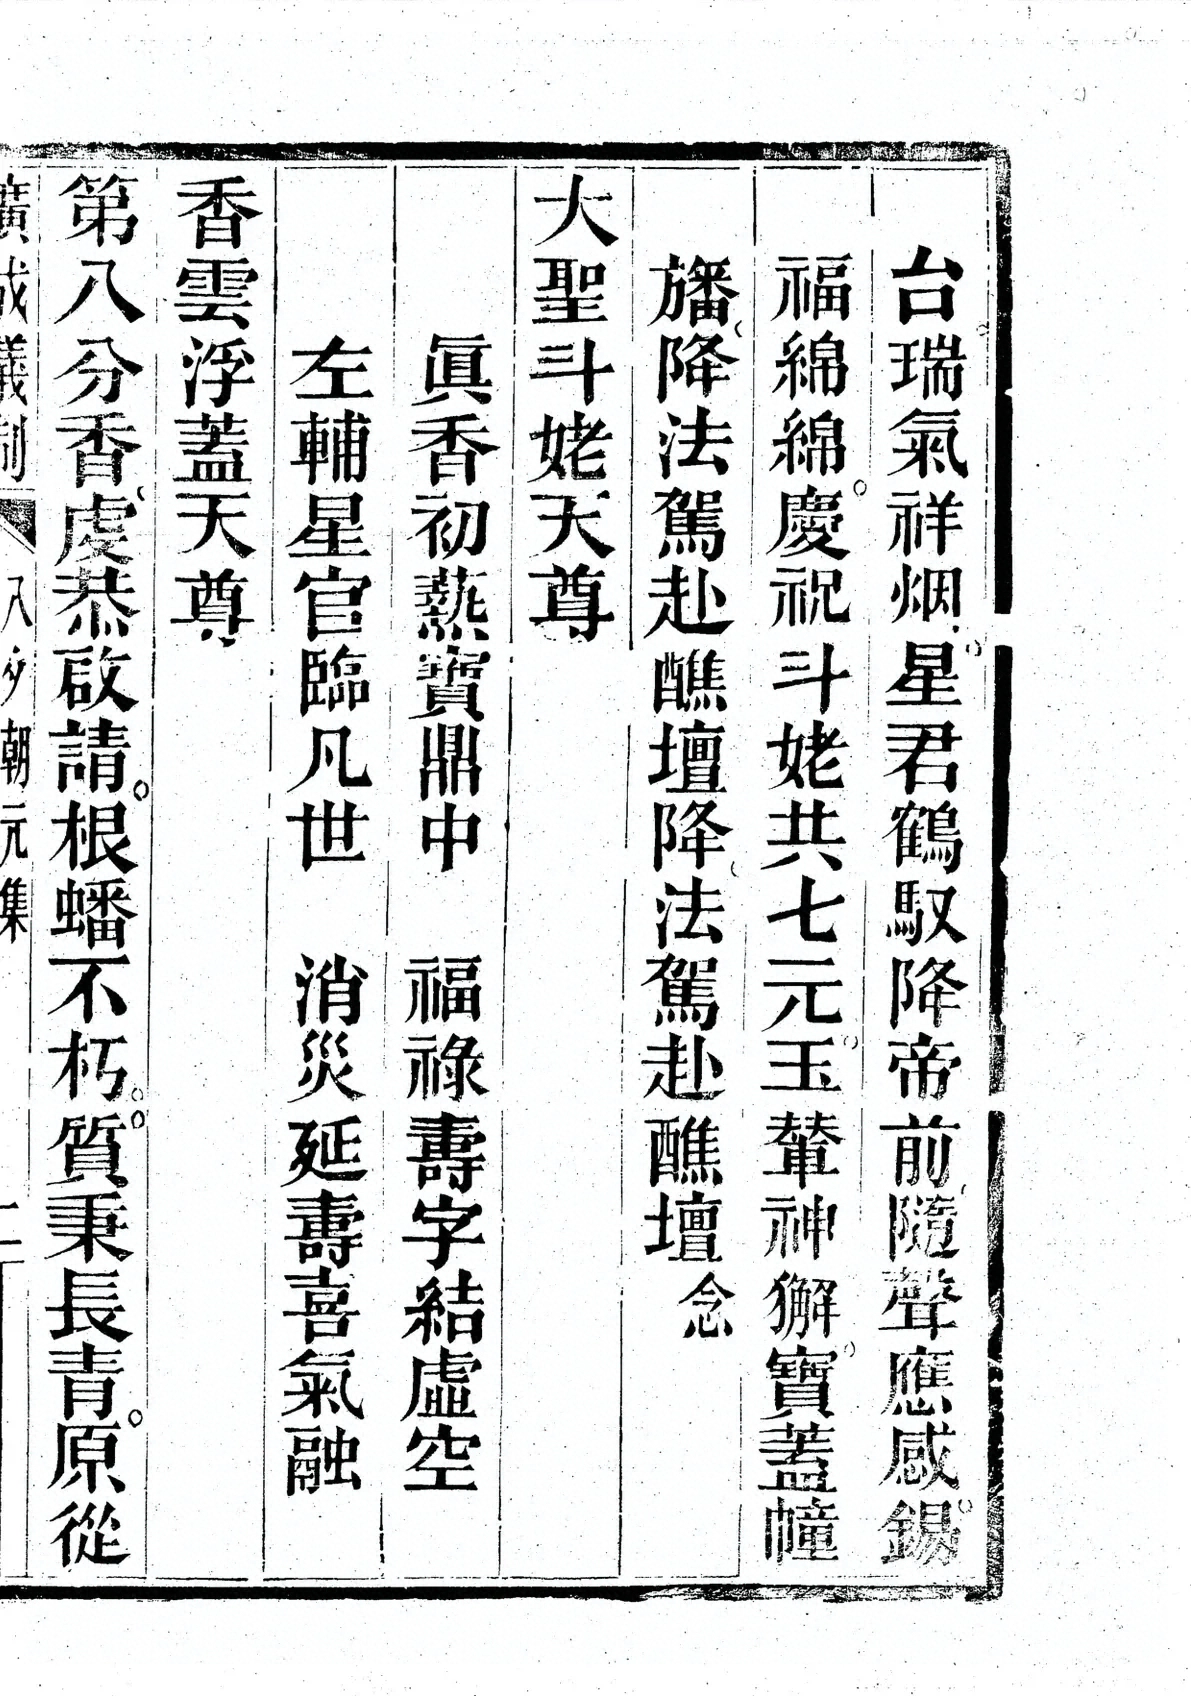 台瑞氣祥烟星君鶴馭降帝前隨聲應感錫
福綿綿慶祝斗姥共七元玉輦神獬寶蓋幢
旛降法駕赴醮壇降法駕赴醮壇念
大聖斗姥天尊
眞香初爇寶鼎中　福祿壽字結虛空
左輔星官臨凡世　消災延壽喜氣融
香雲浮蓋天尊
第八分香虔恭啟請根蟠不朽質秉長青原從
廣成儀制　八夕朝元集　二